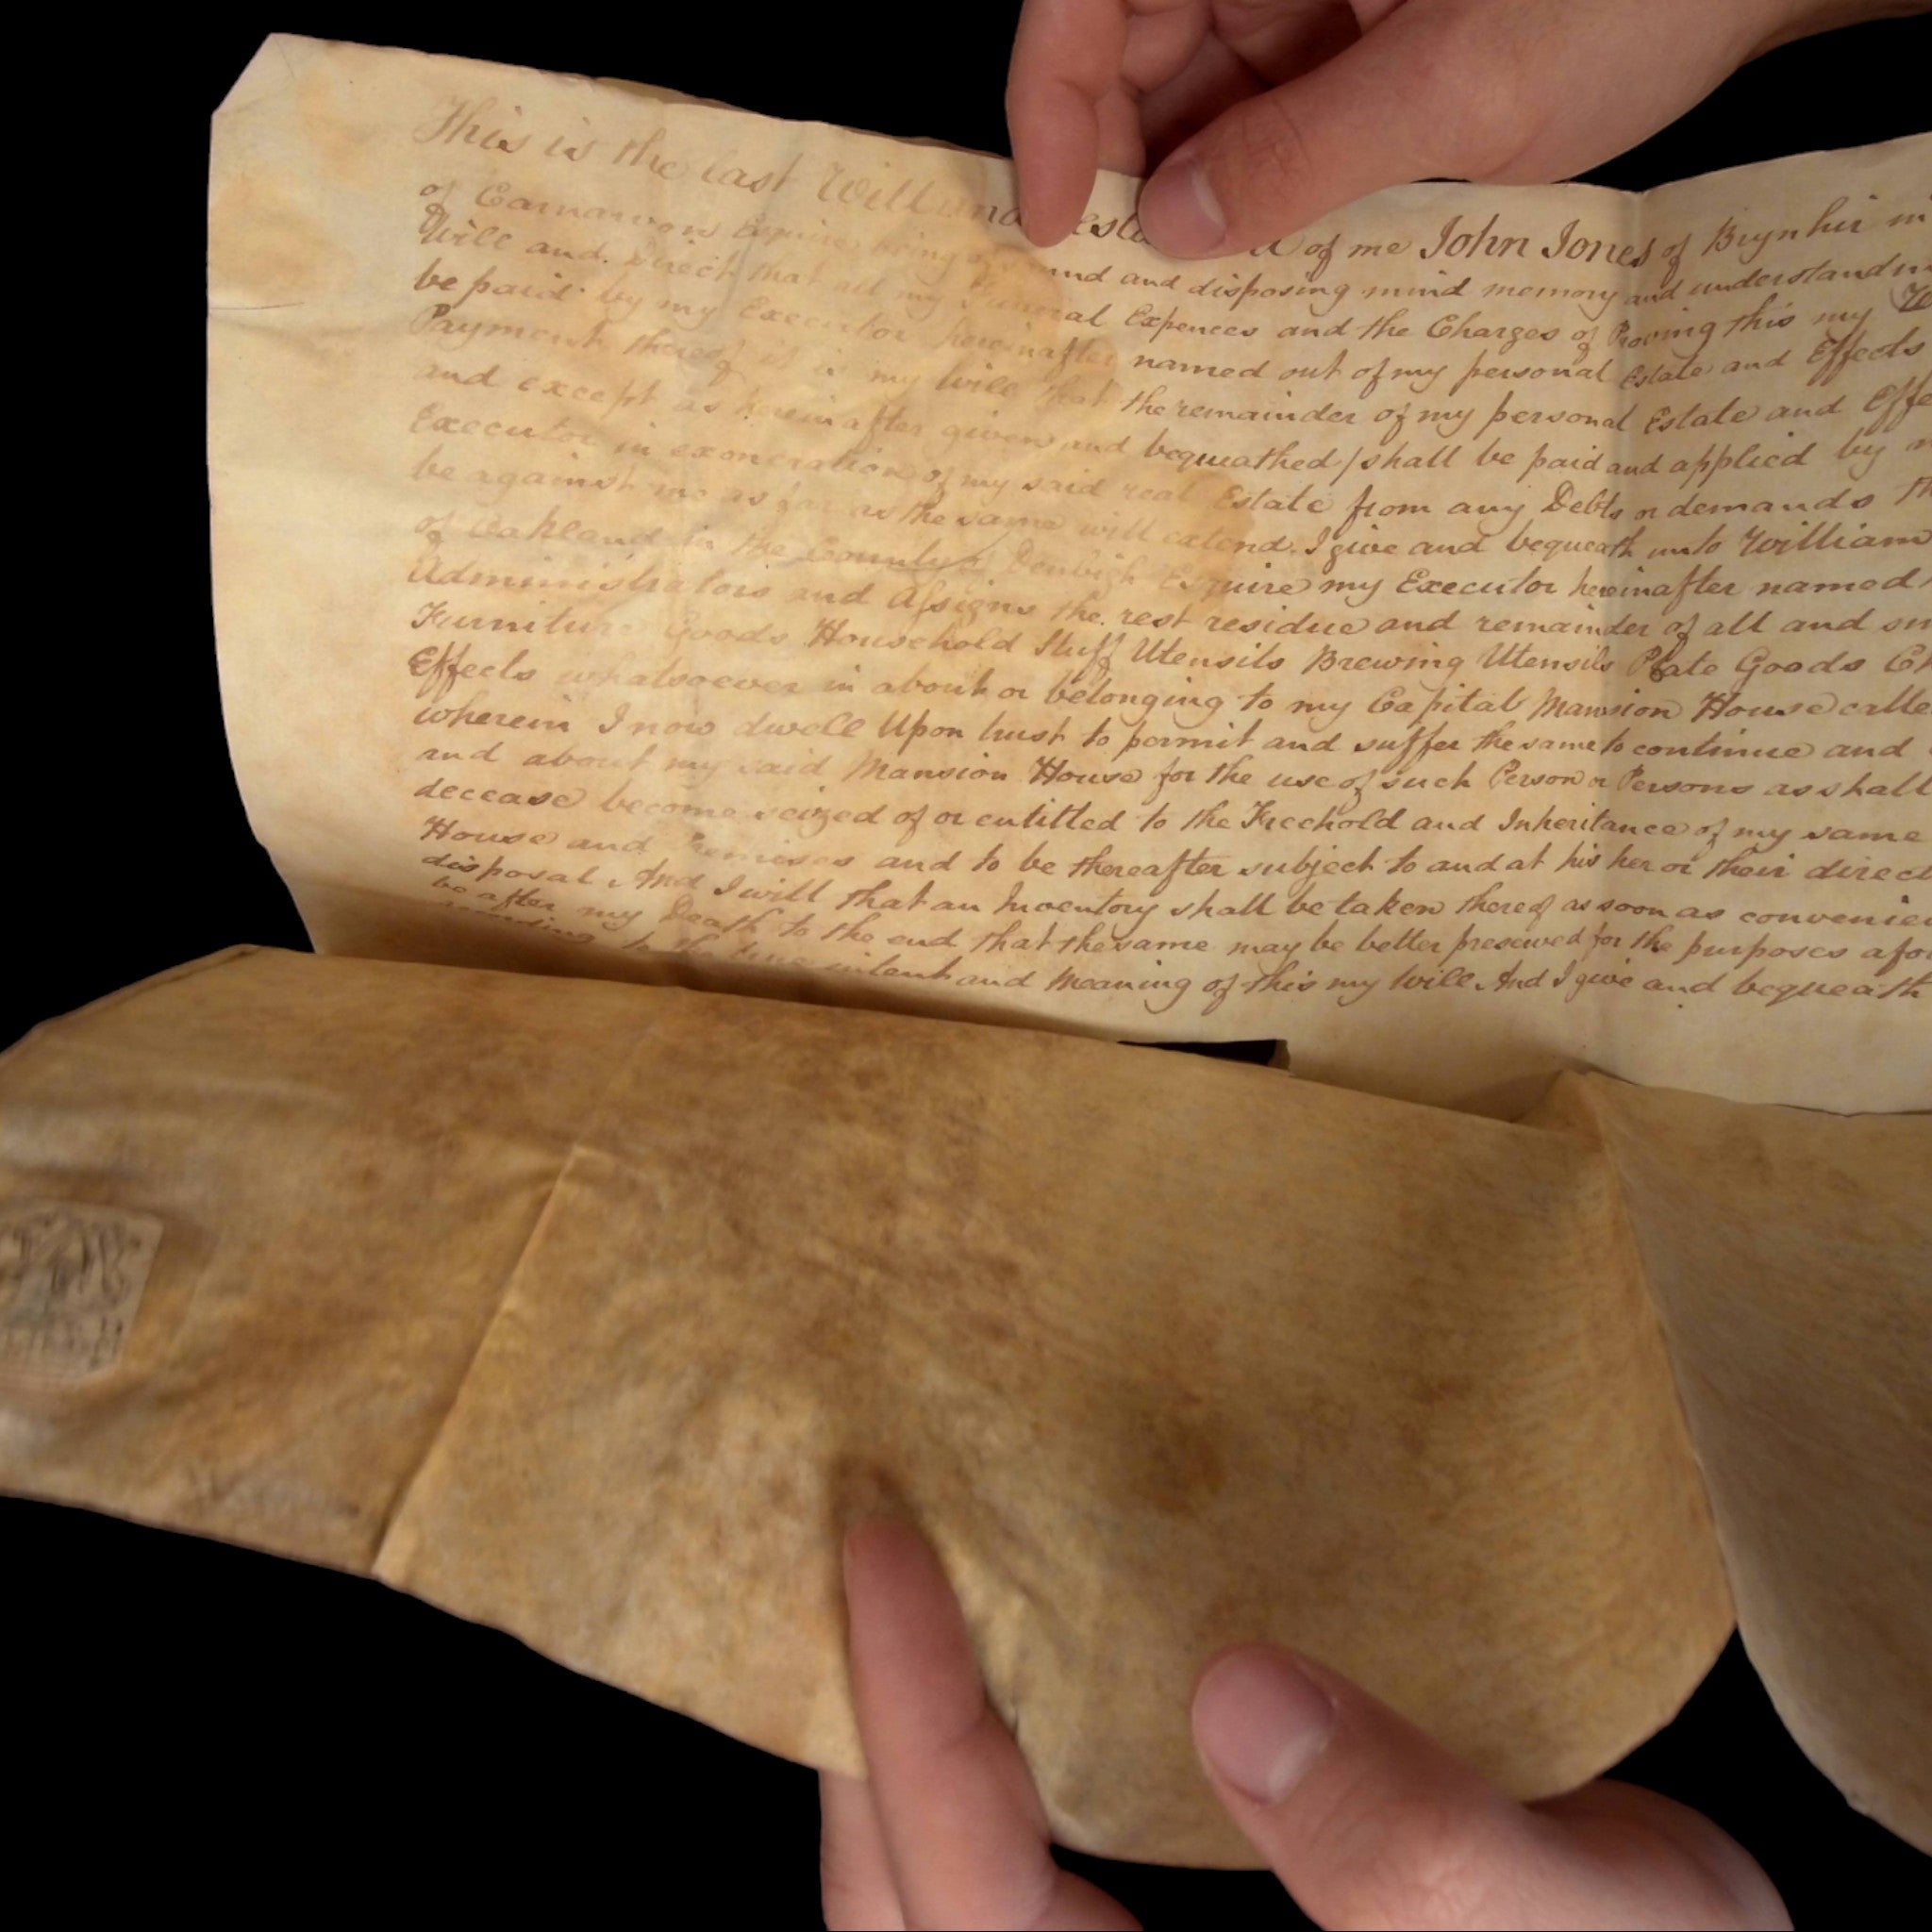 This is the last Will and of me John Jones of Brynhir in
of Carnarvon Esquire being of and and disposing mind memory and understandin
Will and Direct that all my Funeral Expences and the Charges of Proving this my
be paid by my Executor hereinafter named out of my personal Estate and Effects
Payment thereof it is my Will that the remainder of my personal Estate and Effe
and except as hereinafter given and bequeathed / shall be paid and applied by m
Executor in exoneration of my said real Estate from any Debts or demands th
be against me as far as the same will extend. I give and bequeath unto William
of Oakland in the County of Denbigh Esquire my Executor hereinafter named
Administrators and Assigns the rest residue and remainder of all and sin
Furniture Goods Household Stuff Utensils Brewing Utensils Plate Goods Ch
Effects whatsoever in about or belonging to my Capital Mansion House calle
wherein I now dwell Upon trust to permit and suffer the same to continue and
and about my said Mansion House for the use of such Person or Persons as shall
decease become seized of or entitled to the Freehold and Inheritance of my same
House and Premises and to be thereafter subject to and at his her or their direct
disposal And I will that an Inventory shall be taken thereof as soon as convenien
be after my Death to the end that the same may be better preserved for the purposes afor
according to the true intent and Meaning of this my Will. And I give and bequeath